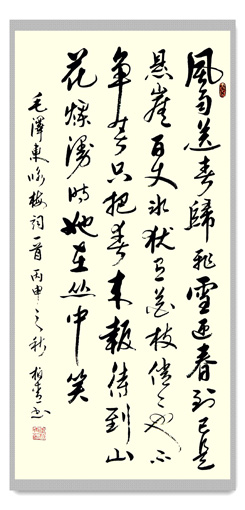 風雨送春歸飛雪迎春到已是
悬崖百丈冰犹有花枝俏々也不
争春只把春来報待到山
花爛漫時她在丛中笑
毛澤東咏梅詞一首丙申之秋